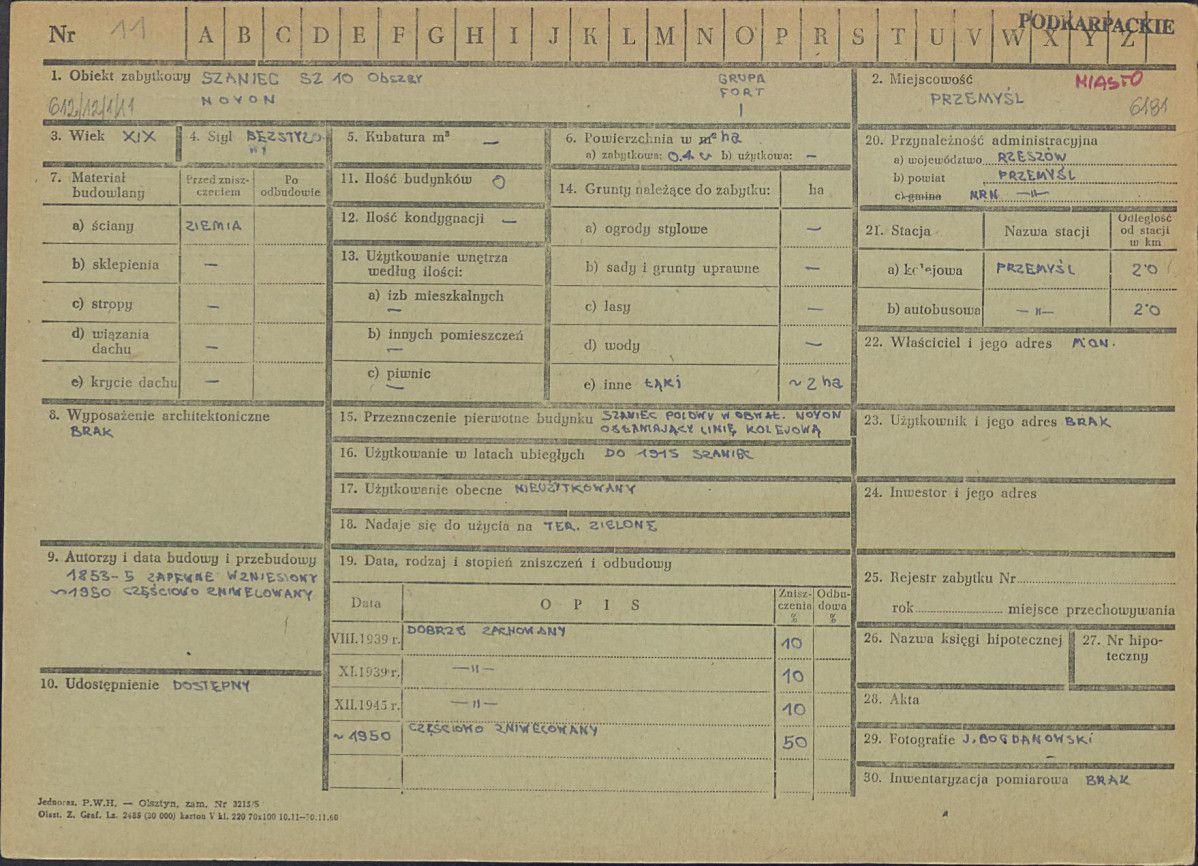 Nr 11 A B C D E F G H I J K L M N O P R S T U V W X Y Z PODKARPACKIE
1. Obiekt zabytkowy SZANIEC SZ 10 Obszar
NOYON
GRUPA
FORT
I
612/12/1/11
2. Miejscowość MIASTO
PRZEMYŚL
6181
3. Wiek XIX
4. Styl BEZSTYLO-
WY
5. Kubatura m³ —
6. Powierzchnia w m² ha
a) zabytkowa: 0.4 b) użytkowa: —
7. Materiał
budowlany
Przed znisz-
czeniem
Po
odbudowie
a) ściany ZIEMIA
b) sklepienia —
c) stropy —
d) wiązania
dachu —
e) krycie dachu —
8. Wyposażenie architektoniczne
BRAK
9. Autorzy i data budowy i przebudowy
1853-5 ZAPEWNE WZNIESIONY
~1950 CZĘŚCIOWO ZNIWELOWANY
10. Udostępnienie DOSTĘPNY
11. Ilość budynków 0
12. Ilość kondygnacji —
13. Użytkowanie wnętrza
według ilości:
a) izb mieszkalnych
—
b) innych pomieszczeń
—
c) piwnic
—
14. Grunty należące do zabytku: ha
a) ogrody stylowe —
b) sady i grunty uprawne —
c) lasy —
d) wody —
e) inne ŁĄKI ~2 ha
15. Przeznaczenie pierwotne budynku SZANIEC POLOWY W OBWAŁ. NOYON
OSŁANIAJĄCY LINIĘ KOLEJOWĄ
16. Użytkowanie w latach ubiegłych DO 1915 SZANIEC
17. Użytkowanie obecne NIEUŻYTKOWANY
18. Nadaje się do użycia na TER. ZIELONE
19. Data, rodzaj i stopień zniszczeń i odbudowy
Data O P I S Znisz-
czenia
%
Odbu-
dowa
%
VIII.1939 r. DOBRZE ZACHOWANY 10
XI.1939 r. —"— 10
XII.1945 r. —"— 10
~1950 CZĘŚCIOWO ZNIWELOWANY 50
20. Przynależność administracyjna
a) województwo RZESZÓW
b) powiat PRZEMYŚL
c) gmina MRN —"—
21. Stacja Nazwa stacji Odległość
od stacji
w km
a) kolejowa PRZEMYŚL 2.0
b) autobusowa —"— 2.0
22. Właściciel i jego adres MON.
23. Użytkownik i jego adres BRAK
24. Inwestor i jego adres
25. Rejestr zabytku Nr
rok miejsce przechowywania
26. Nazwa księgi hipotecznej
27. Nr hipo-
teczny
28. Akta
29. Fotografie J. BOGDANOWSKI
—
30. Inwentaryzacja pomiarowa BRAK
Jednoraz. P.W.H. — Olsztyn, zam. Nr 3215/S
Olszt. Z. Graf. Lz. 2488 (30 000) karton V kl. 220 70x100 10.11—30.11.60